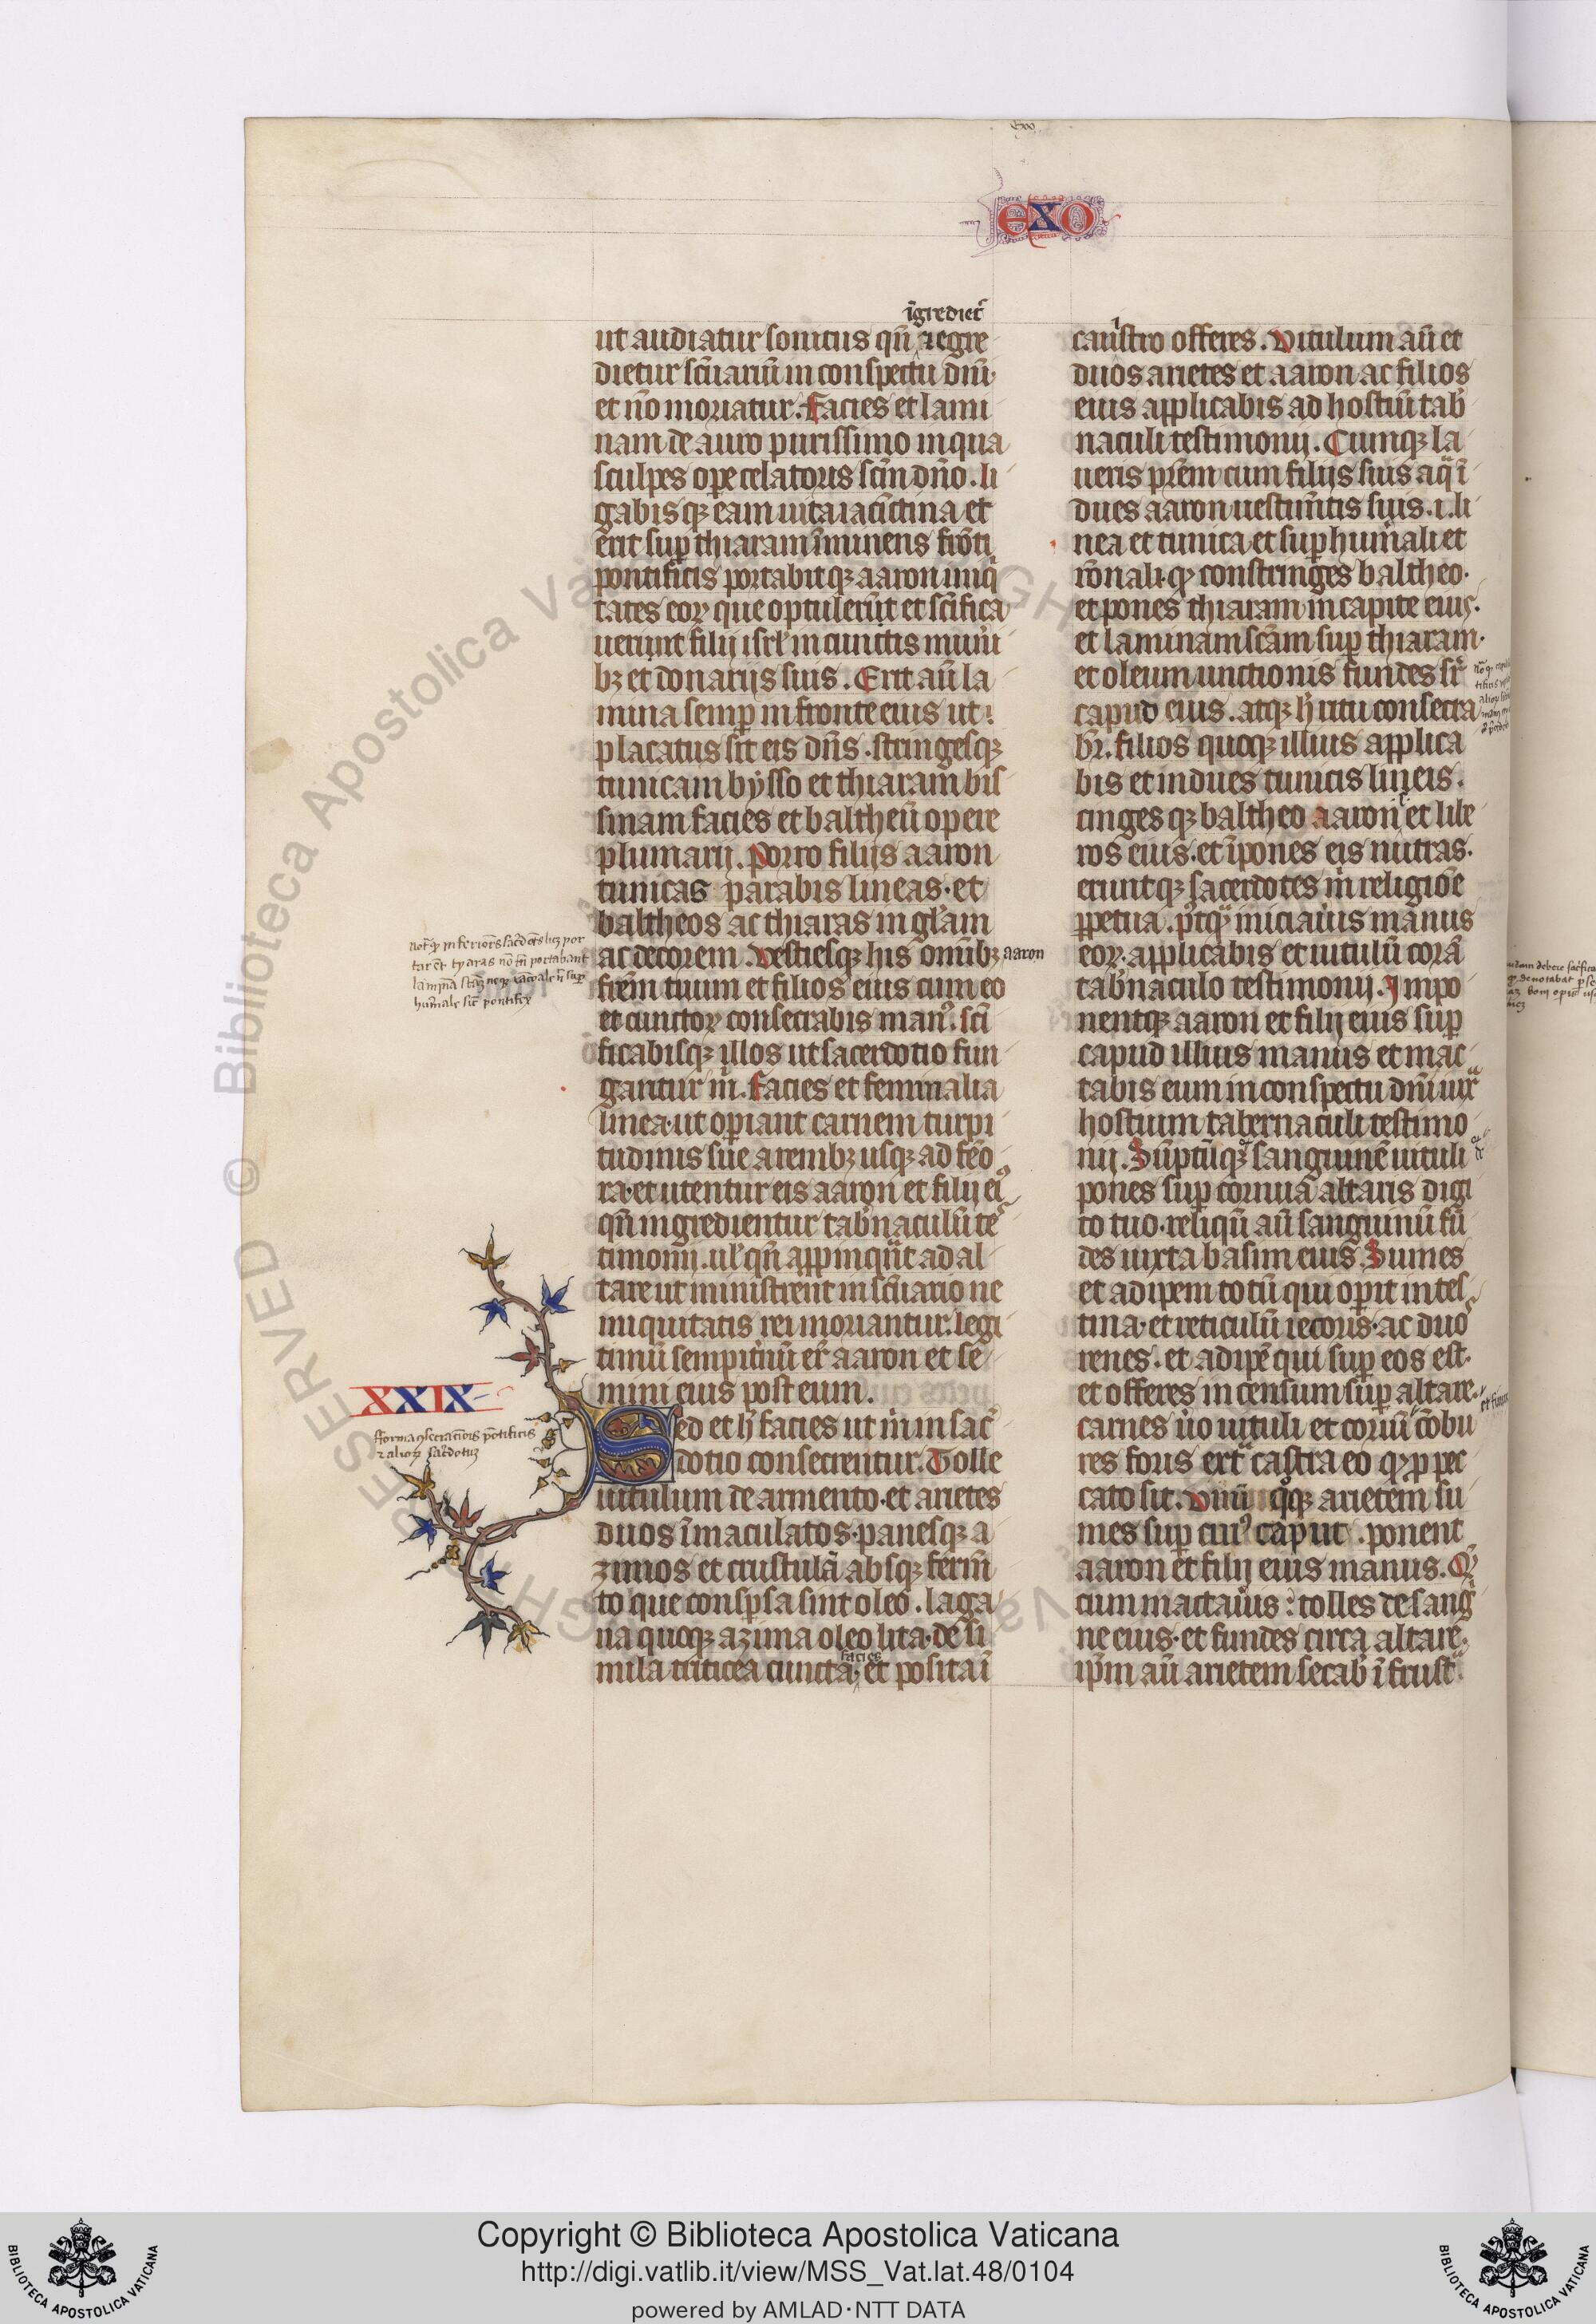 exo
īgrediet᷑
ut audiatur sonitus qn̄ ⁊ egre
dietur sc̄uariū in conspectu dn̄i·
et nō moriatur. Facies et lami
nam de auro purissimo in qua
sculpes ope celatoris sc̄m dn̄o. li
gabisqꝫ eam uita iacīctina et
erit sup thiaram īminens frōti
pontificis portabitqꝫ aaron iniq
tates eoꝝ que optulerūt et sc̄ifica
uerunt filij isrl̄ in cunctis mun̄i
bꝫ et donarijs suis. Erit aū la
mina semp in fronte eius ut
placatus sit eis dn̄s. stringesqꝫ
tunicam bysso et thiaram bis
sinam facies et baltheū opere
plumarij. Porro filijs aaron
tunicas parabis lineas. et
baltheos ac thiaras in gl̄am
ac decorem. Vestiesqꝫ his om̄ibꝫ aaron
frēm tuum et filios eius cum eo
et cunctoꝝ consecrabis manꝰ. sc̄i
ficabisqꝫ illos ut sacerdotio fun
gantur m̄. Facies et feminalia
linea. ut opiant carnem turpi
tudinis sue a renibꝫ usqꝫ ad femo
ra. et utentur eis aaron et filij eiꝰ
qn̄ ingredientur tab̄naculū tes
timonij. ul̄ qn̄ appinqūt ad al
tare ut ministrent in sc̄uario ne
iniquitatis rei moriantur. legi
timū sempit̄nū er̄ aaron et se
mini eius post eum.
XXIX
Sed et h̄ facies ut m̄ in sac̄
dotio consecrentur. Tolle
uitulum de armento. et arietes
duos īmaculatos. panesqꝫ a
zimos et crustulā absqꝫ ferm̄
to que conspsa sint oleo. laga
na quoqꝫ azima oleo lita. de si
facies
mila triticea cuncta, et posita ī
caīstro offeres. Vitulum aū et
duos arietes et aaron ac filios
eius applicabis ad hostiū tab̄
naculi testimonij. Cumqꝫ la
ueris prēm cum filijs suis aqa ī
dues aaron uestim̄tis suis. i. li
nea et tunica et sup humali et
rōnali. qꝫ constringes baltheo.
et pones thiaram in capite eius.
et laminam sc̄am sup thiaram.
et oleum unctionis fundes sr̄
capud eius. atqꝫ h̄ ritu consecra
br̄. filios quoqꝫ illius applica
bis et indues tunicis lineis.
cingesqꝫ baltheo aaron et libe
ros eius. et īpones eis mitras.
eruntqꝫ sacerdotes m̄ religiōe
ppetua. ptqꝫ iniciaūis manus
eoꝝ. applicabis et uitulū corā
tab̄naculo testimonij. Impo
nentqꝫ aaron et filij eius sup
capud illius manus et mac
tabis eum in conspectu dn̄i iux
hostium tabernaculi testimo
nij. Sūptūqꝫ sanguinē uituli
pones sup cornua altaris digi
to tuo. reliqū aū sanguinū fū
des iuxta basim eius. Sumes
et adipem totū qui opit intes
tina. et reticulū iecoris. ac duos
renes. et adipē qui sup eos est.
et offeres incensum sup altare.
carnes ūo uituli et coriū cōbu
res foris ext̄ castra eo qꝫ p pec
cato sit. Vnū qqꝫ arietem su
mes sup cuiꝰ caput . ponent
aaron et filij eius manus. Q
cum mactaūis: tolles de sang
ne eius. et fundes circa altare.
ip̄m aū arietem secab̄ ī frusta.
fforma ꝯsecrac̄ois pōtificis
⁊ alioꝝ sac̄dotuꝫ
Copyright © Biblioteca Apostolica Vaticana
http://digi.vatlib.it/view/MSS_Vat.lat.48/0104
powered by AMLAD·NTT DATA
BIBLIOTECA APOSTOLICA VATICANA
BIBLIOTECA APOSTOLICA VATICANA